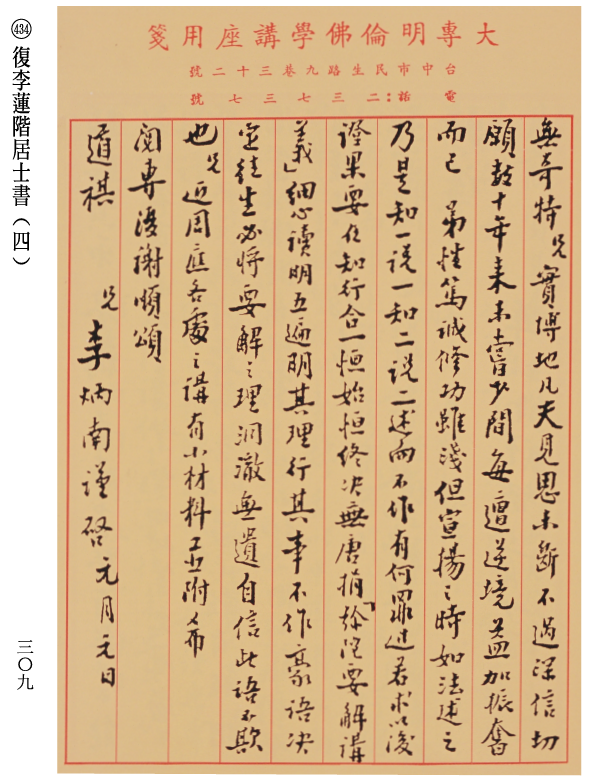 ㊞434 復李蓮階居士書（四）
大專明倫佛學講座用箋
台中市民生路九巷三十二號
電話：二三七三七號
無奇特兄實博地凡夫見思未斷不過深信切
願數十年來未嘗少間每遭逆境益加振奮
而已 弟性篤誠修功雖淺但宣揚之時如法述之
乃是知一說一知二說二述而不作有何罪過若求以後
證果要在知行合一恒始恒終决無唐捐「要解講
義」細心讀明五遍明其理行其事不作豪語决
定往生必將要解之理洞澈無遺自信此語不欺
也兄近因應各處之講有小材料並附希
閱專復謝順頌
道祺
兄李炳南謹啓元月元日
三〇九